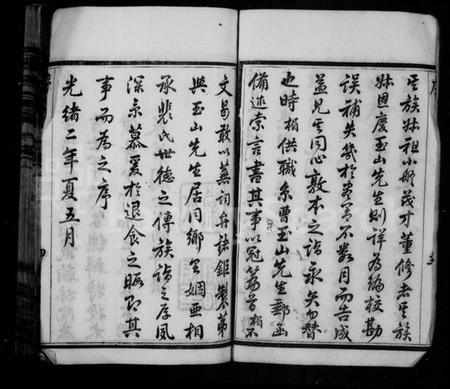 其族叔祖小舫茂才董修者其族
叔恩慶玉山先生則詳為編校勘
誤補失幾於卷不數月而告成
益見其同心敦本之誼永矢勿替
也時相供職京曹玉山先生郵函
備述索言書其事以冠篇首相不
文曷敢以蕪詞弁諸鉅製第
與玉山先生居同鄉里姻亞相
承裴氏世德之傳族誼之厚夙
深景慕爰於退食之暇即其
事而為之序
光緒二年夏五月